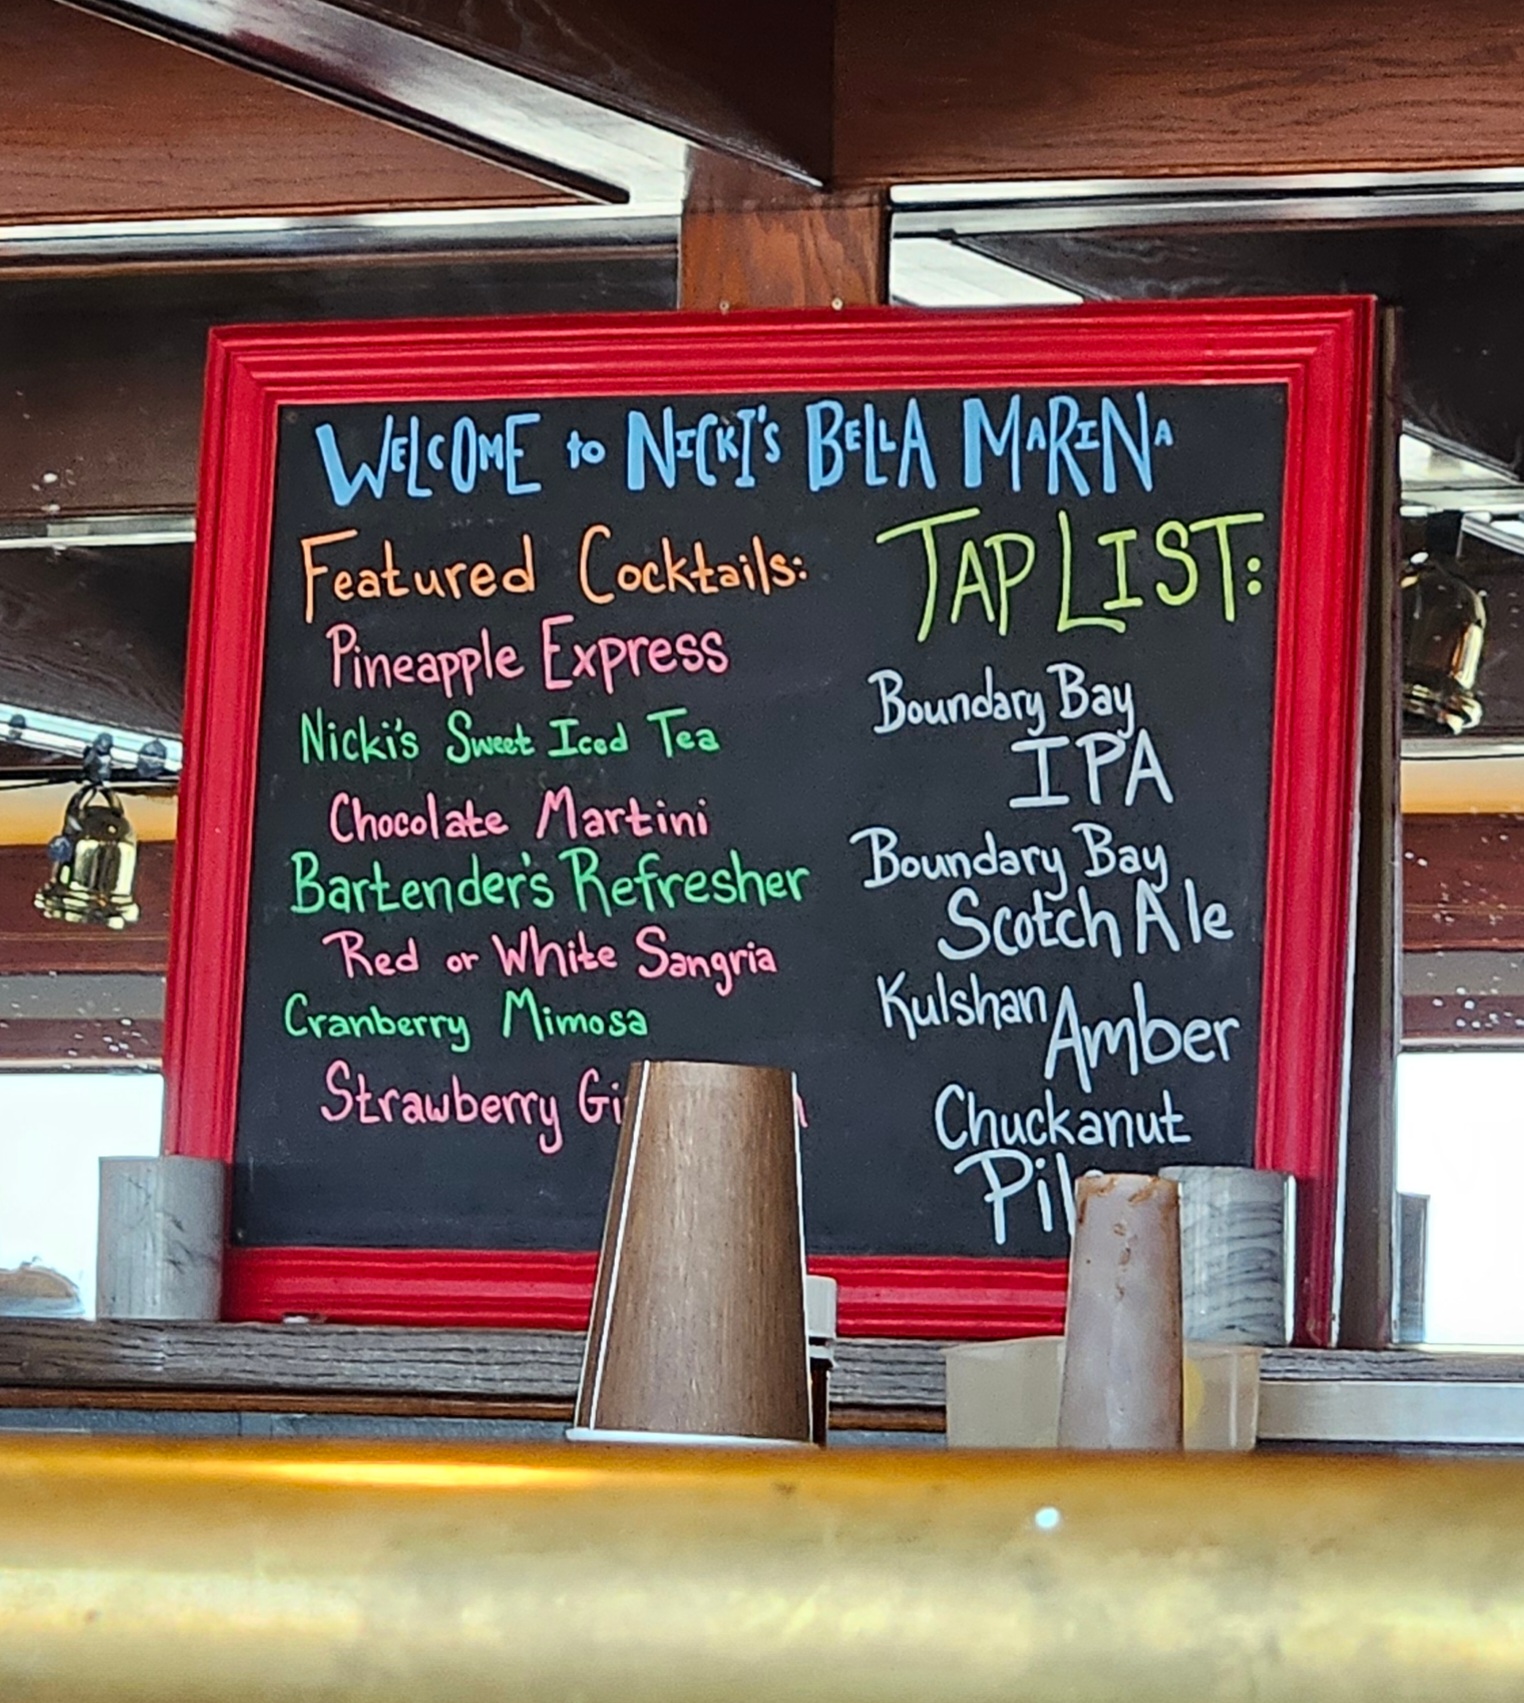 WELCOME to NICKI'S BELLA MARINA
Featured Cocktails:
Pineapple Express
Nicki's Sweet Iced Tea
Chocolate Martini
Bartender's Refresher
Red or White Sangria
Cranberry Mimosa
Strawberry
TAP LIST:
Boundary Bay
IPA
Boundary Bay
Scotch Ale
Kulshan
Amber
Chuckanut